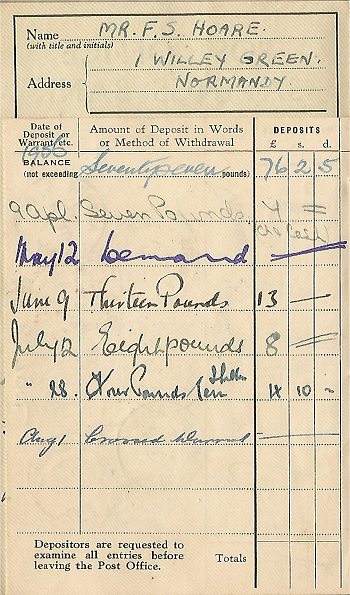 Name MR. F. S. HOARE.
(with title and initials)
1 WILLEY GREEN.
Address NORMANDY
Date of Deposit or Warrant, etc. Amount of Deposit in Words or Method of Withdrawal DEPOSITS
£ s. d.
1955
BALANCE (not exceeding Seventyseven pounds) 76 2 5
9 Apl. Seven Pounds =
May 12 Demand —
June 9 Thirteen Pounds 13 —
July 12 Eight pounds 8 =
" 28. Four Pounds Ten 10 -
Aug 1 Crossed Warrant —
Depositors are requested to
examine all entries before
leaving the Post Office.
Totals